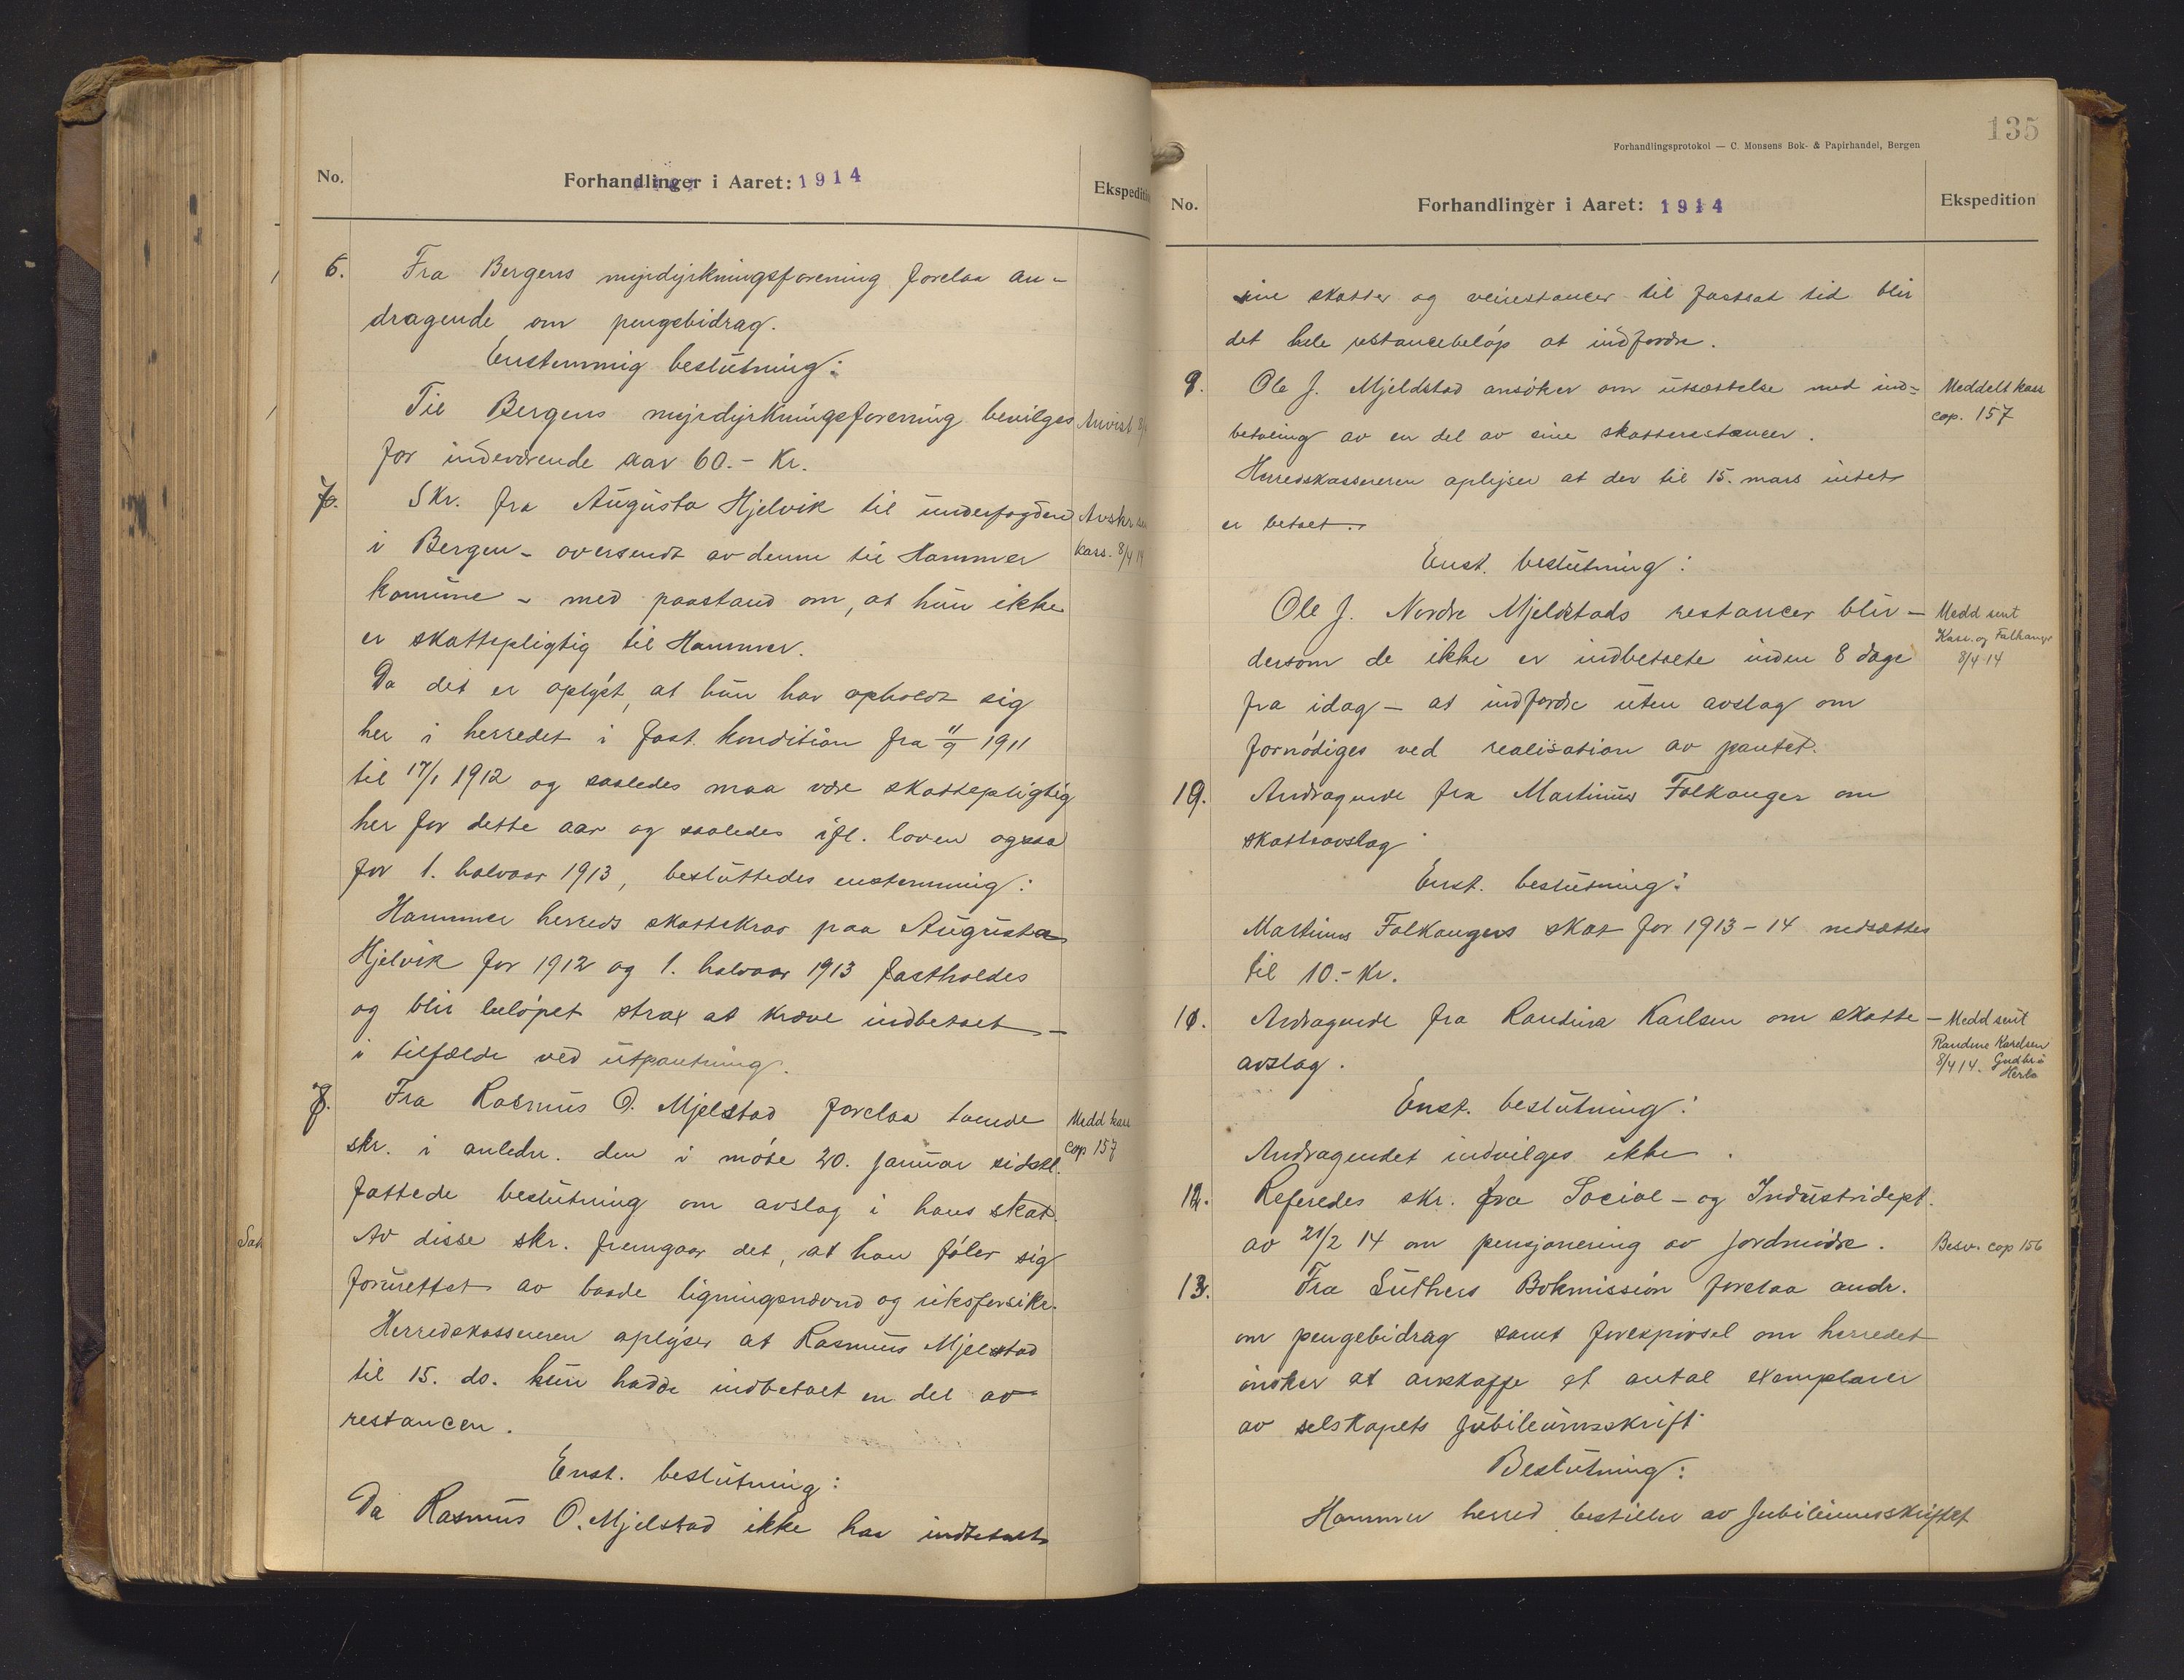 No.
Forhandlinger i Aaret: 1914
Ekspedition
6. Fra Bergens myrdyrkningsforening forelaa an-
dragende om pengebidrag.
Enstemmig beslutning:
Til Bergens myrdyrkningsforening bevilges
Anvist 8/4
for indeværende aar 60.- Kr.
7. Skr. fra Augusta Hjelvik til underfogden
Avskr.
i Bergen - oversendt av denne til Hammer
kass. 8/4 14
komune - med paastand om, at hun ikke
er skattepligtig til Hammer.
Da det er oplyst, at hun har opholdt sig
her i herredet i fast kondition fra 11/9 1911
til 17/1 1912 og saaledes maa være skattepligtig
her for dette aar og saaledes ifl. loven ogsaa
for 1. halvaar 1913, besluttedes enstemmig:
Hammer herreds skattekrav paa Augusta
Hjelvik for 1912 og 1. halvaar 1913 fastholdes
og blir beløpet strax at kræve indbetalt -
i tilfælde ved utpantning.
8. Fra Rasmus O. Mjelstad forelaa tvende
Medd kass
skr. i anledn. den i møte 20. januar sidstl.
cop 157
fattede beslutning om avslag i hans skat.
Av disse skr. fremgaar det, at han føler sig
forurettet av baade ligningsnævnd og riksforsikr.
Herredskassereren oplyser at Rasmus Mjelstad
til 15. ds. kun hadde indbetalt en del av
restancen.
Enst. beslutning:
Da Rasmus O. Mjelstad ikke har indbetalt
135
Forhandlingsprotokol — C. Monsens Bok- & Papirhandel, Bergen
No.
Forhandlinger i Aaret: 1914
Ekspedition
sine skatter og veirestancer til fastsat tid blir
det hele restancebeløp at indfordre.
9. Ole J. Mjeldstad ansøker om utsættelse med ind=
Meddelt kass
cop. 157
betaling av en del av sine skatterestancer.
Herredskassereren oplyser at der til 15. mars intet
er betalt.
Enst. beslutning:
Ole J. Nordre Mjeldstads restancer blir -
Medd sent
Kass. og Falkanger
8/4 14
dersom de ikke er indbetalte inden 8 dage
fra idag - at indfordre uten avslag om
fornødiges ved realisation av pantet.
10. Andragende fra Martinus Falkanger om
skatteavslag
Enst. beslutning:
Martinus Falkangers skat for 1913-14 nedsættes
til 10.- Kr.
11. Andragende fra Randina Karlsen om skatte-
Medd sent
Randine Karelsen
8/4 14.
Herlø
avslag.
Enst. beslutning:
Andragendet indvilges ikke.
12. Referedes skr. fra Social- og Industridept.
av 21/2 14 om pensjonering av jordmødre.
Besv. cop 156
13. Fra Luthers Bokmission forelaa andr.
om pengebidrag samt forespørsel om herredet
ønsker at anskaffe et antal exemplarer
av selskapets jubileumsskrift.
Beslutning:
Hammer herred bestiller av Jubileumsskriftet